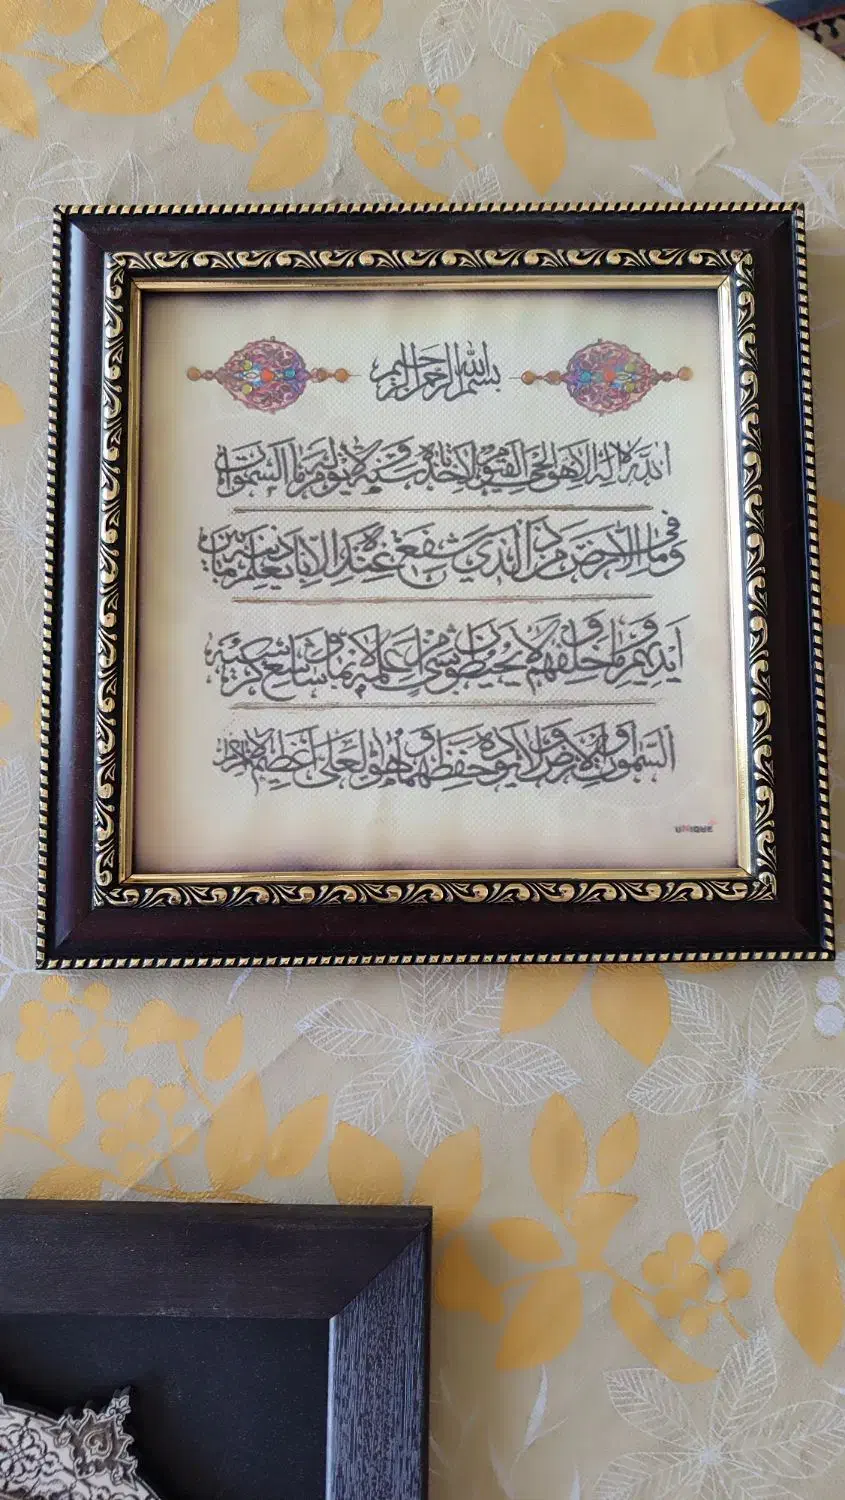 بسم الله الرحمن الرحیم
الله لا اله الا هو الحی القیوم لا تاخذه سنة و لا نوم له ما السموات
فی و ما الارض من ذا الذی یشفع عنده الا باذنه یعلم ما بین
ایدیهم و ما خلفهم و لا یحیطون بشیء من علمه الا بما شاء وسع کرسیه
السموات و الارض و لا یوده حفظهما و هو العلی العظیم
UNIQUE